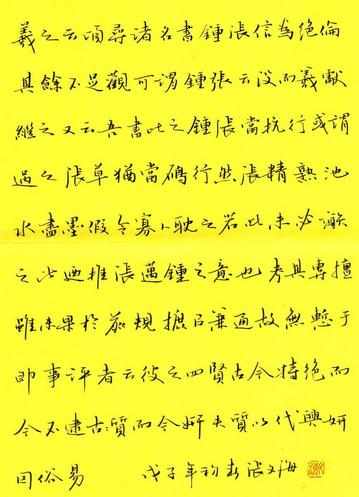 羲之云頃尋諸名書鍾張信為絕倫
其餘不足觀可謂鍾張云沒而羲獻
繼之又云吾書比之鍾張當抗行或謂
過之張草猶當鴈行然張精熟池
水盡墨假令寡人耽之若此未必謝
之此迺推張邁鍾之意也考其專擅
雖未果於前規摭以兼通故無慙于
即事評者云彼之四賢古今特絕而
今不逮古古質而今妍夫質以代興妍
因俗易 戊子年初春張文海